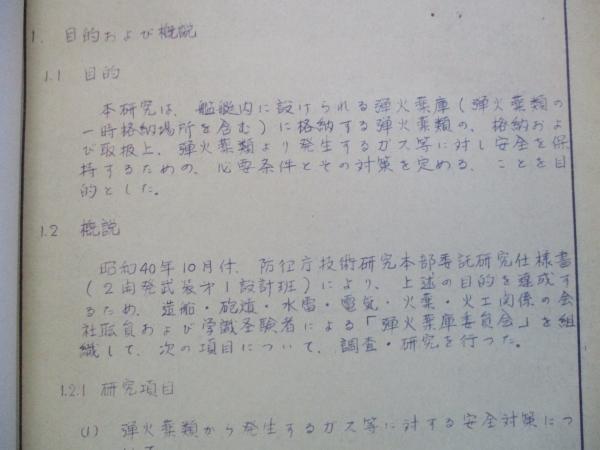 1. 目的および概説
1.1 目的
本研究は、艦艇内に設けられる弾火薬庫(弾火薬類の
一時格納場所を含む)に格納する弾火薬類の、格納およ
び取扱上、弾火薬類より発生するガス等に対し安全を保
持するための、必要条件とその対策を定める、ことを目
的とした。
1.2 概説
昭和40年10月付、防衛庁技術研究本部委託研究仕様書
(2由発式装才1設計班)により、上述の目的を達成す
るため、造船・砲熕・水雷・電気・火薬・火工関係の会
社職員および学識経験者による「弾火薬庫委員会」を組
織して、次の項目について、調査・研究を行つた。
1.2.1 研究項目
(1) 弾火薬類から発生するガス等に対する安全対策につ